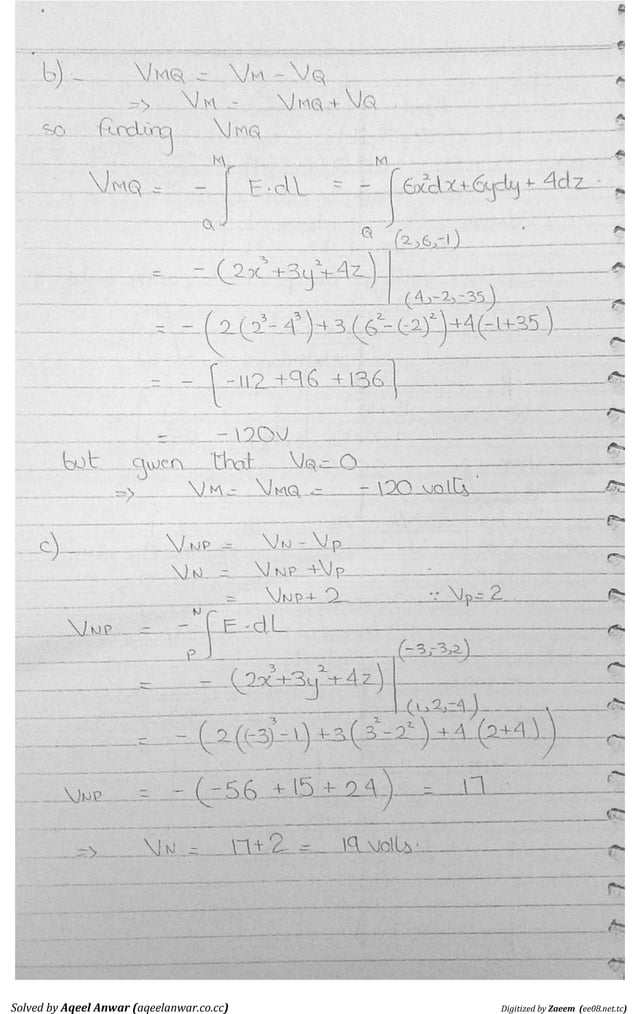 b)- VMQ = VM - VQ
=> VM = VMQ + VQ.
so finding VMQ
VMQ = - ∫ E.dL = - ∫ 6x²dx+6ydy+4dz.
M M
Q Q
(2,6,-1)
= -(2x³+3y²+4z) |
(4,-2,-35)
= -(2(2³-4³)+3(6²-(-2)²)+4(-1+35)
= -[-112+96+136]
= -120V
but given that VQ=0
=> VM = VMQ = -120 volts
c) VNP = VN - VP
VN = VNP + VP
= VNP + 2 ∵ VP=2
VNP = - ∫ E.dL
N
P
(-3,-3,2)
= -(2x³+3y²+4z) |
(1,2,-4)
= -(2((-3)³-1)+3(3²-2²)+4(2+4))
VNP = -(-56+15+24) = 17
=> VN = 17+2 = 19 volts.
Solved by Aqeel Anwar (aqeelanwar.co.cc)
Digitized by Zaeem (ee08.net.tc)